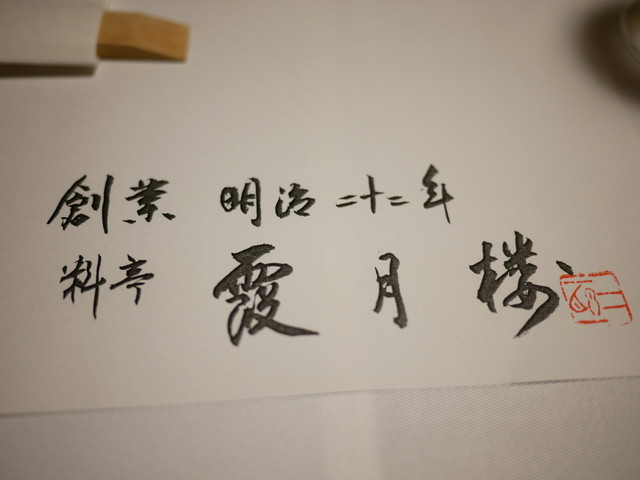 創業 明治二十二年
料亭 霞月楼